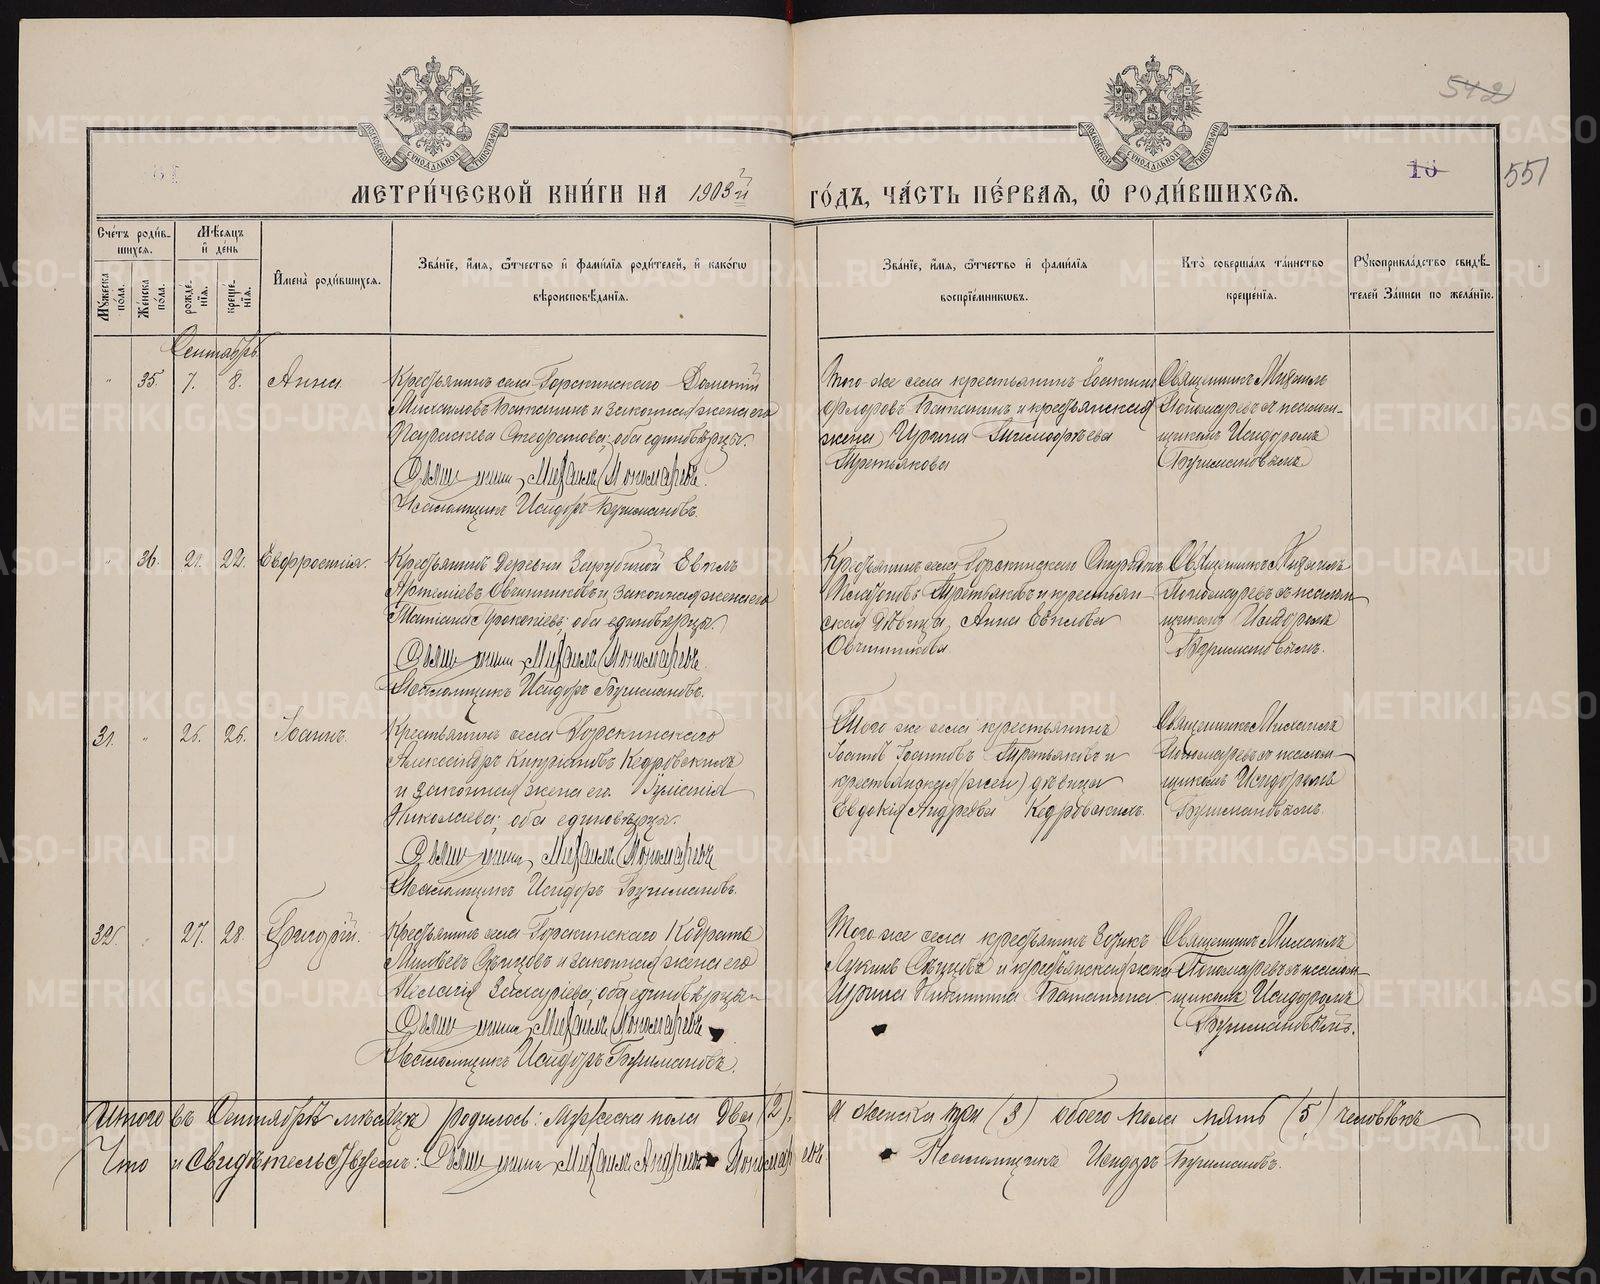 542
10
551
МОСКОВСКОЙ СѴНОДАЛЬНОЙ ТИПОГРАФІИ
МОСКОВСКОЙ СѴНОДАЛЬНОЙ ТИПОГРАФІИ
МЕТРИ́ЧЕСКОЙ КНИ́ГИ НА 1903й ГО́ДЪ, ЧА́СТЬ ПЕ́РВАЯ, Ѿ РОДИ́ВШИХСЯ.
Сче́тъ роди́вшихся.
Мѣ́сяцъ и҆ де́нь
Мꙋ́жеска по́ла.
Же́нска по́ла.
рожде́нїѧ.
креще́нїѧ.
И҆мена̀ роди́вшихсѧ.
Зва́нїе, и҆́мѧ, ѻ҆́тчество и҆ фами́лїѧ роди́телей, и҆ како́гѡ
вѣроисповѣ́данїѧ.
Зва́нїе, и҆́мѧ, ѻ҆́тчество и҆ фами́лїѧ
воспрїе́мникѡвъ.
Кто̀ соверша́лъ та́инство
креще́нїѧ.
Рꙋкоприкла́дство свидѣ́-
телей За́писи по жела́нїю.
Сентябрь.
" 35. 7. 8. Анна
Крестьянинъ села Горскинскаго Дометій
Михаиловъ Батанинъ и законная жена его
Параскева Стефанова; оба единовѣрцы.
Священникъ Михаилъ Пономаревъ.
Псаломщикъ Исидоръ Бурмановъ.
Того же села крестьянинъ Іоакимъ
Флоровъ Батанинъ и крестьянская
жена Ирина Тимофѣева
Третьякова
Священникъ Михаилъ
Пономаревъ съ псалом-
щикомъ Исидоромъ
Бурмановымъ
" 36. 21. 22. Евфросинія.
Крестьянинъ деревни Зарубиной Евѳилъ
Артеміевъ Овчинниковъ и законная жена его
Татіана Прокопіева; оба единовѣрцы.
Священникъ Михаилъ Пономаревъ.
Псаломщикъ Исидоръ Бурмановъ.
Крестьянинъ села Горскинскаго Спиридонъ
Третьяковъ и крестьян-
ская дѣвица Анна Евѳилова
Овчинникова.
Священникъ Михаилъ
Пономаревъ съ псалом-
щикомъ Исидоромъ
Бурмановымъ.
31. " 25. 26. Іоаннъ.
Крестьянинъ села Горскинскаго
Александръ Кипріановъ Кедровскихъ
и законная жена его Іуліанія
Николаева; оба единовѣрцы.
Священникъ Михаилъ Пономаревъ
Псаломщикъ Исидоръ Бурмановъ.
Того же села крестьянинъ
Іоаннъ Іоанновъ Третьяковъ и
крестьянская (жен) дѣвица
Евдокія Андреева Кедровскихъ.
Священникъ Михаилъ
Пономаревъ съ псалом-
щикомъ Исидоромъ
Бурмановымъ.
32. " 27. 28. Григорій.
Крестьянинъ села Горскинскаго Кодратъ
Сѣнцовъ и законная жена его
Пелагія Захаріева; оба единовѣрцы.
Священникъ Михаилъ Пономаревъ
Псаломщикъ Исидоръ Бурмановъ.
Того же села крестьянинъ Зотикъ
Лукинъ Сѣнцовъ и крестьянская жена
Ирина Никитина Батанина
Священникъ Михаилъ
Пономаревъ съ псалом-
щикомъ Исидоромъ
Бурмановымъ.
Итого въ Сентябрѣ мѣсяцѣ родилось: Мужеска пола два (2). и женска три (3) обоего пола пять (5) человѣкъ
Что и свидѣтельствуемъ: Священникъ Михаилъ Андреевъ Пономаревъ. Псаломщикъ Исидоръ Бурмановъ.
METRIKI.GASO-URAL.RU